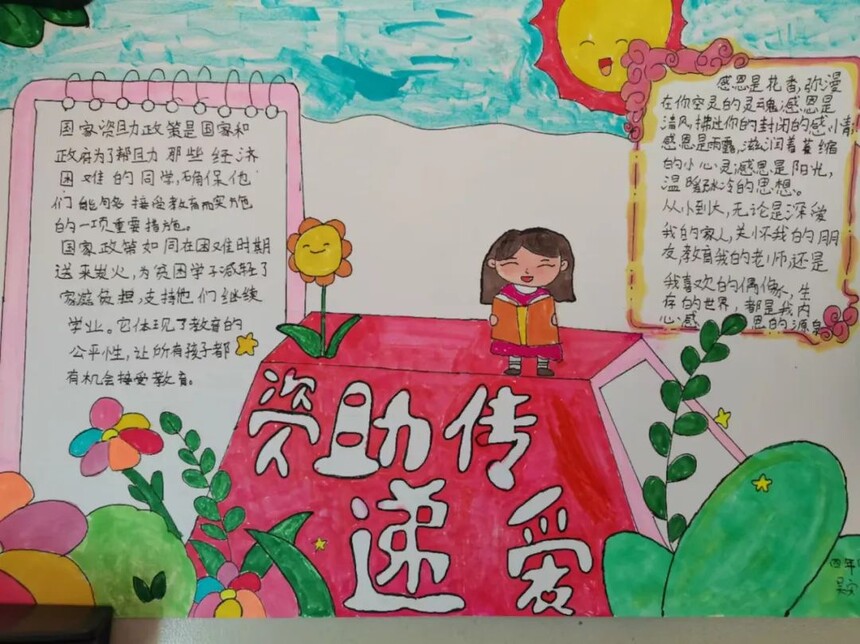 国家资助政策是国家和
政府为了帮助那些经济
困难的同学,确保他
们能够接受教育而实施
的一项重要措施。
国家政策如同在困难时期
送来炭火,为贫困学子减轻了
家庭负担,支持他们继续
学业。它体现了教育的
公平性,让所有孩子都
有机会接受教育。
感恩是花香,弥漫
在你空灵的灵魂感恩是
清风,拂过你的封闭的感情
感恩是雨露,滋润着萎缩
的小心灵感恩是阳光,
温暖冰冷的思想。
从小到大,无论是深爱
我的家人,关怀我的朋
友,教育我的老师还是
我喜欢的偶像,生
存的世界,都是我内
心感恩的源泉
资助传
递爱
四年